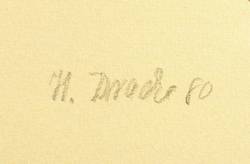 H. Drache 80